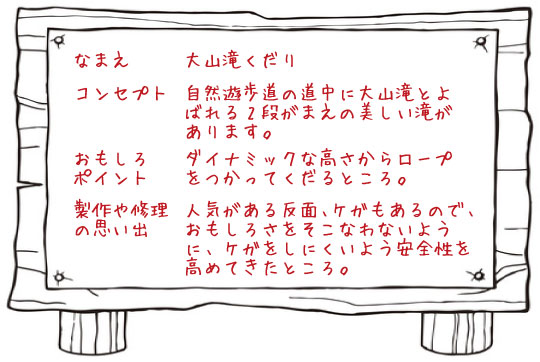 なまえ 大山滝くだり
コンセプト 自然遊歩道の道中に大山滝とよ
ばれる2段がまえの美しい滝が
あります。
おもしろ ダイナミックな高さからロープ
ポイント をつかってくだるところ。
製作や修理 人気がある反面、ケガもあるので、
の思い出 おもしろさをそこなわないよう
に、ケガをしにくいよう安全性を
高めてきたところ。